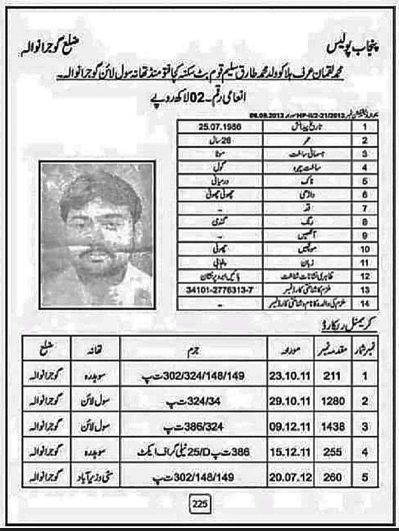 پنجاب پولیس ضلع گوجرانوالہ
محمد لقمان عرف ہلاکو ولد محمد طارق سلیم قوم بٹ سکنہ کچا فتو منڈ تھانہ سول لائن گوجرانوالہ۔
انعامی رقم۔02 لاکھ روپے
نوٹیفکیشن نمبر HP-II/2-21/2012 مورخہ 06.08.2013
1 تاریخ پیدائش 25.07.1986
2 عمر 26سال
3 جسمانی ساخت موٹا
4 ساخت چہرہ گول
5 ناک درمیانی
6 داڑھی چھوٹی چھوٹی
7 قد -
8 رنگ گندمی
9 آنکھیں -
10 مونچھیں چھوٹی
11 زبان پنجابی
12 ظاہری نشانات شناخت بائیں ابرو پر نشان
13 ملزم کا شناختی کارڈ نمبر 34101-2776313-7
14 ملزم کی والدہ کا نام و شناختی کارڈ نمبر -
کریمنل ریکارڈ
نمبر شمار مقدمہ نمبر مورخہ جرم تھانہ ضلع
1 211 23.10.11 302/324/148/149ت پ سوہدرہ گوجرانوالہ
2 1280 29.10.11 324/34ت پ سول لائن گوجرانوالہ
3 1438 09.12.11 386/324ت پ سول لائن گوجرانوالہ
4 255 15.12.11 386ت پ 25/Dٹیلی گراف ایکٹ سوہدرہ گوجرانوالہ
5 260 20.07.12 302/148/149ت پ سٹی وزیرآباد گوجرانوالہ
225